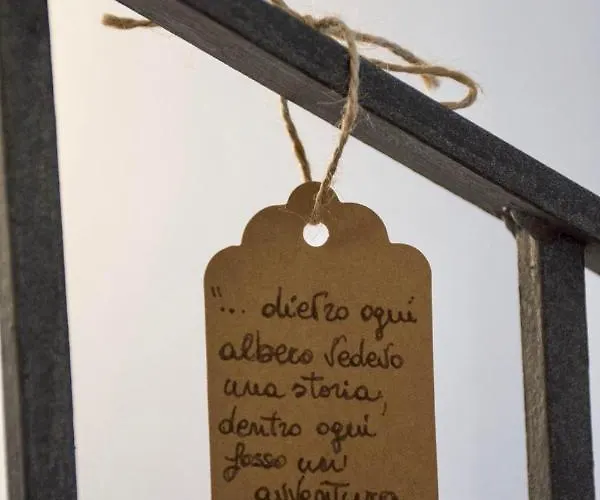 "... dietro ogni
albero vedevo
una storia,
dentro ogni
fosso un'
avventura